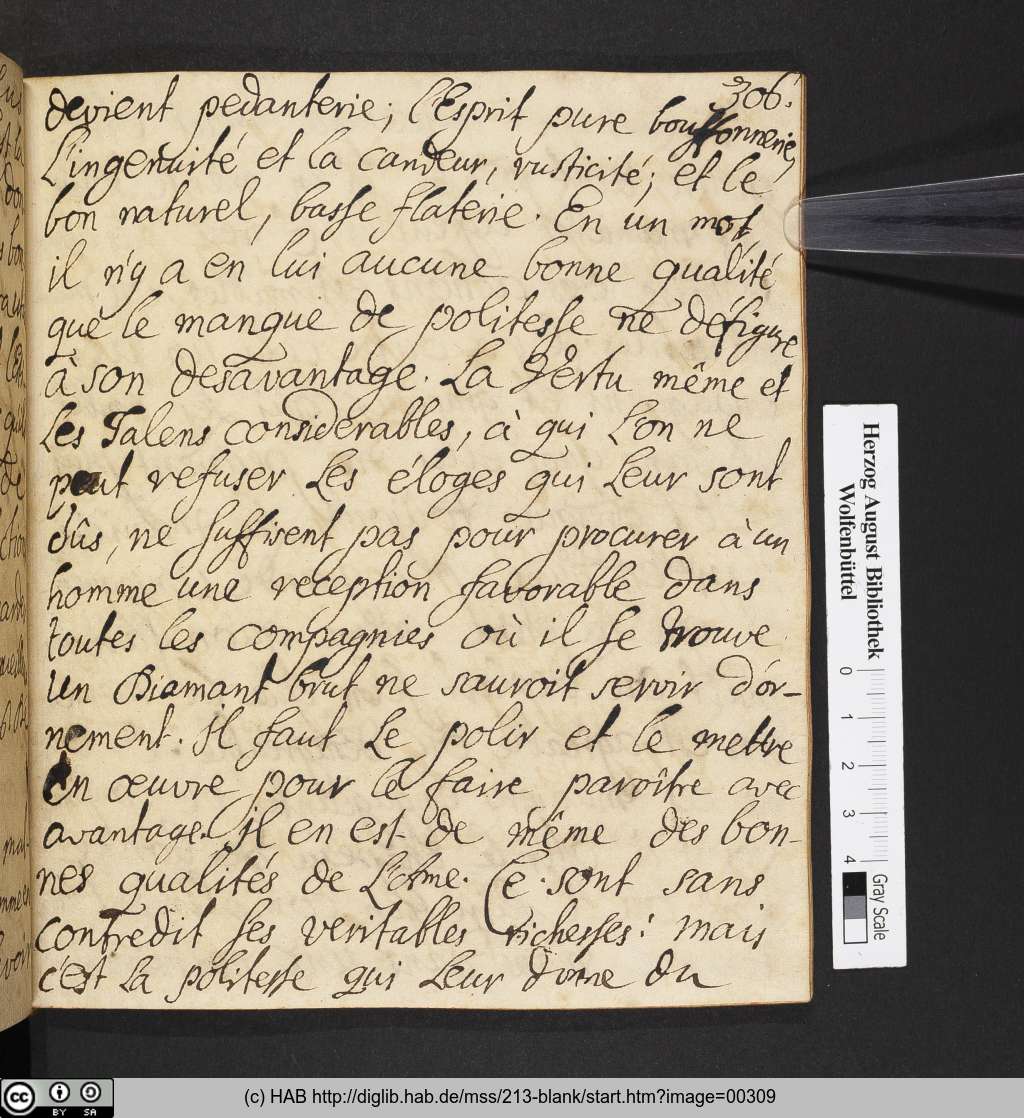 306.
devient pedanterie; l'Esprit pure bouffonnerie,
L'ingenuité et la candeur, rusticité; et le
bon naturel, basse flaterie. En un mot
il n'y a en lui aucune bonne qualité
que le manque de politesse ne défigure
à son desavantage. La Vertu même et
Les Talens considerables, à qui L'on ne
peut refuser Les éloges qui Leur sont
dûs, ne suffisent pas pour procurer à un
homme une reception favorable dans
toutes les compagnies où il se trouve.
Un Diamant brut ne sauroit servir d'or-
nement. Il faut Le polir et le mettre
En œuvre pour le faire paroître avec
avantage. Il en est de même des bon-
nes qualités de L'Ame. Ce sont sans
contredit ses veritables richesses: mais
c'est La politesse qui Leur donne du
Herzog August Bibliothek
Wolfenbüttel
0 1 2 3 4
Gray Scale
cc BY SA
(c) HAB http://diglib.hab.de/mss/213-blank/start.htm?image=00309